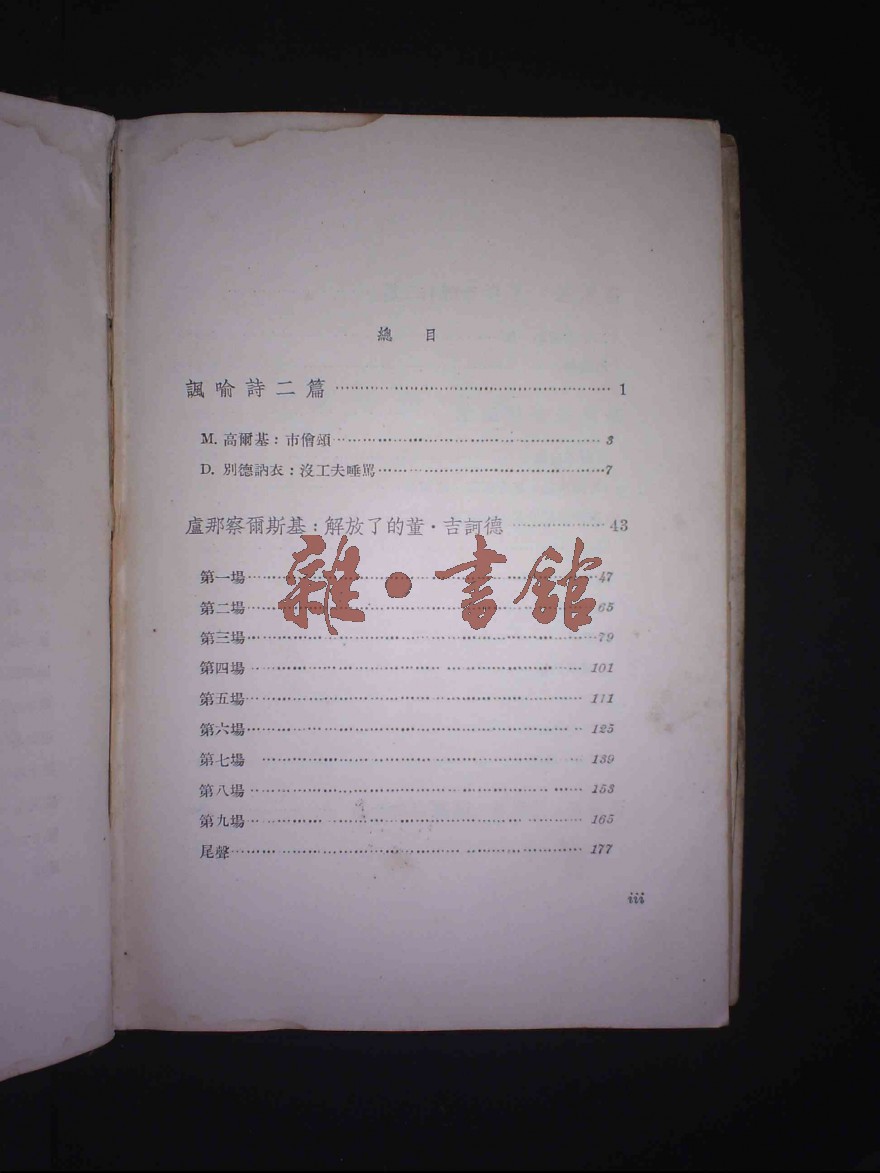 總 目
諷喻詩二篇 1
M. 高爾基：市儈頌 3
D. 別德訥衣：沒工夫唾罵 7
盧那察爾斯基：解放了的董·吉訶德 43
第一場 47
第二場 65
第三場 79
第四場 101
第五場 111
第六場 125
第七場 139
第八場 153
第九場 165
尾聲 177
iii
雜·書館